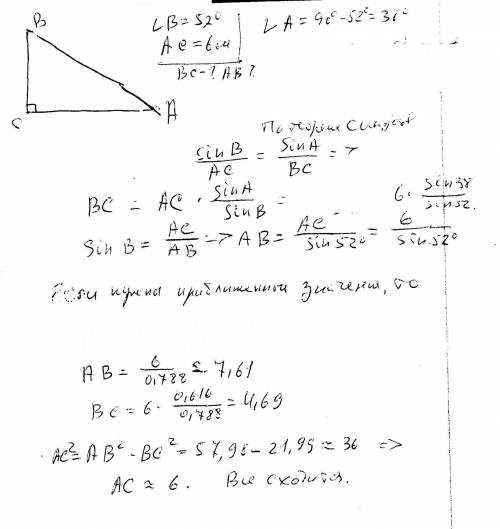 B
C
A
∠B = 52°
AC = 6см
BC - ? AB ?
∠A = 90° - 52° = 38°
По теореме Синусов
sin B / AC = sin A / BC =>
BC = AC · sin A / sin B = 6 · sin 38 / sin 52.
Sin B = AC / AB => AB = AC / sin 52° = 6 / sin 52°
Если нужны приближенные значения, то
AB = 6 / 0,788 ≈ 7,61
BC = 6 · 0,616 / 0,788 = 4,69
AC² = AB² - BC² = 57,98 - 21,99 ≈ 36 =>
AC ≈ 6. Все сходится.